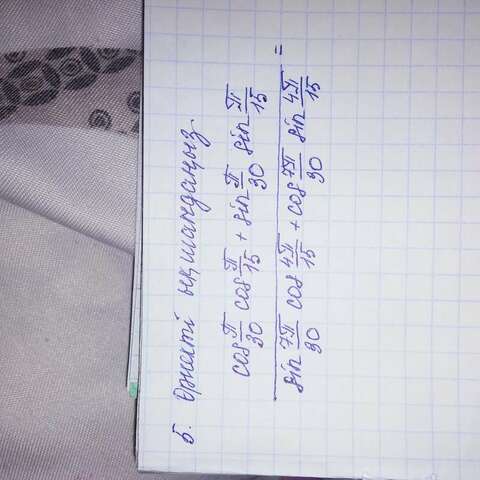 5. Өрнекті ықшамдаңыз.
cos π/30 cos π/15 + sin π/30 sin π/15
sin 7π/30 cos 4π/15 + cos 7π/30 sin 4π/15 =